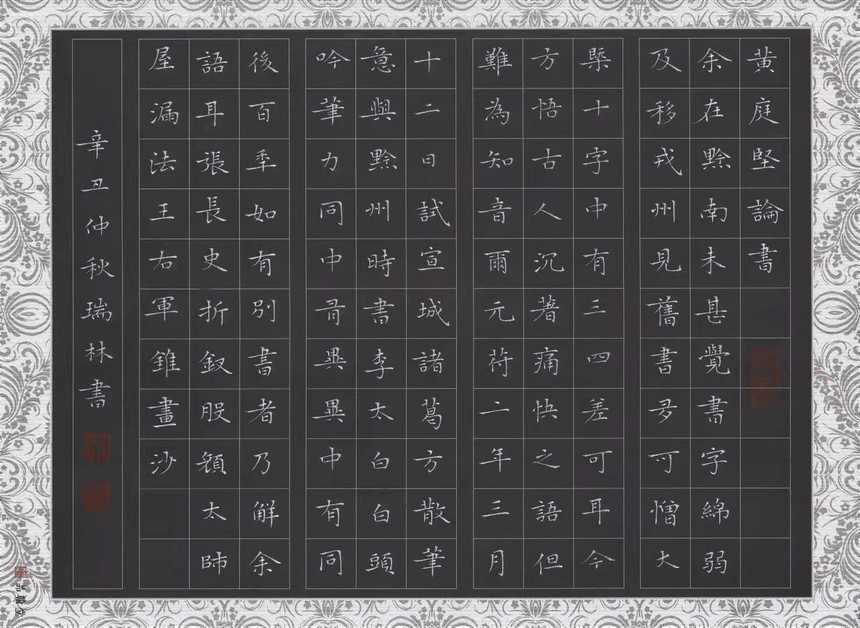 黄庭堅論書
余在黔南未甚覺書字綿弱
及移戎州見舊書多可憎大
槩十字中有三四差可耳今
方悟古人沉著痛快之語但
難為知音爾元符二年三月
十二日試宣城諸葛方散筆
意與黔州時書李太白白頭
吟筆力同中有異異中有同
後百年如有別書者乃解余
語耳張長史折釵股顏太師
屋漏法王右軍錐畫沙
辛丑仲秋瑞林書